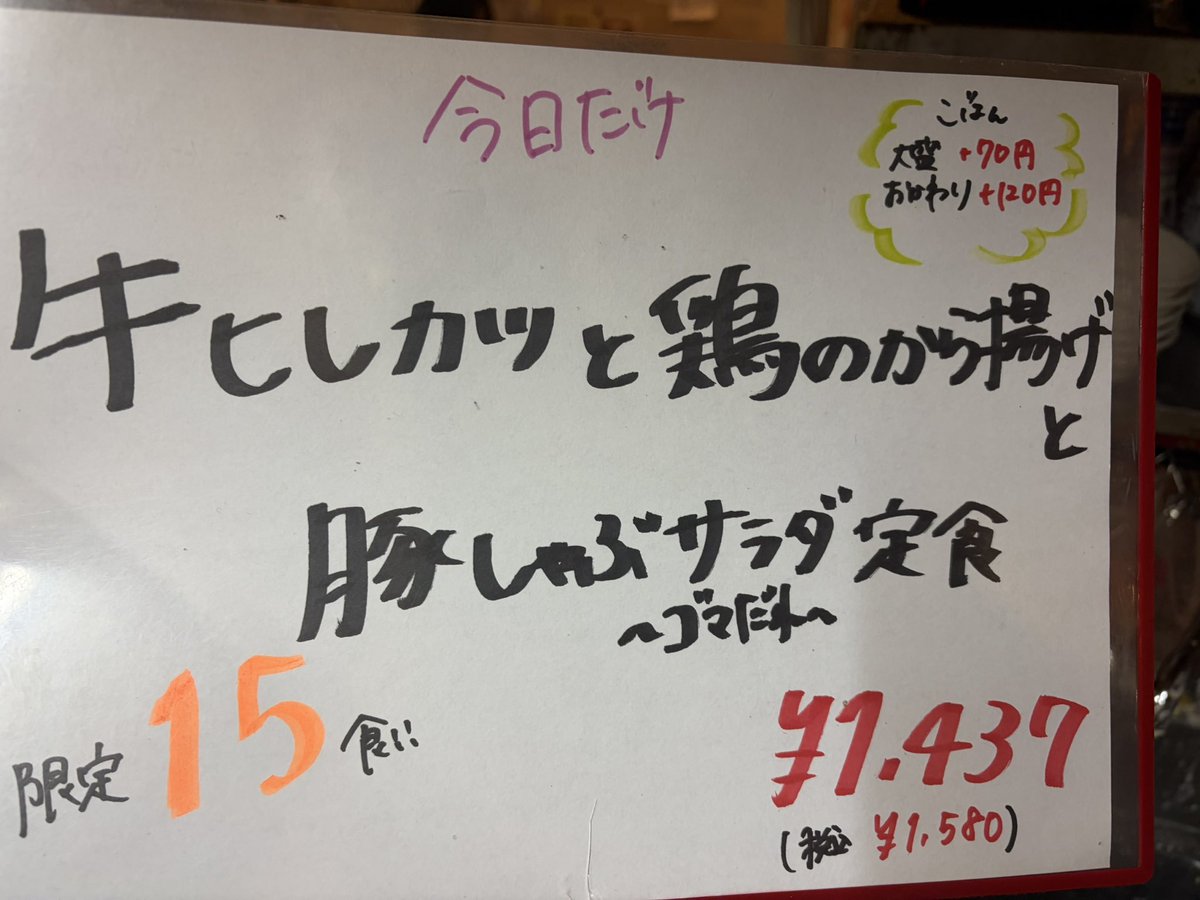 今日だけ
ごはん
大盛 +70円
おかわり +120円
牛ヒレカツと鶏のから揚げ
と
豚しゃぶサラダ定食
～ゴマだれ～
限定 15 食!!
¥1.437
(税込 ¥1,580)